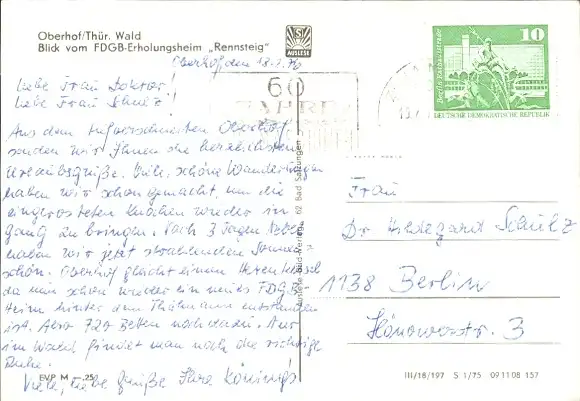 Oberhof/Thür. Wald
Blick vom FDGB-Erholungsheim „Rennsteig"
AUSLESE
Oberhof, den 18.2.76
Liebe Frau Doktor!
Liebe Frau Schulz!
Aus dem tiefverschneiten Oberhof
senden wir Ihnen die herzlichsten
Urlaubsgrüße. Viele, schöne Wanderungen
haben wir schon gemacht, um die
eingerosteten Knochen wieder in
Gang zu bringen. Nach 3 Tagen Nebel
haben wir jetzt strahlenden Sonnen-
schein. Oberhof gleicht einem Hexenkessel
da nun schon wieder ein neues FDGB-
Heim hinter dem Thälmann entstanden
ist. Also 720 Betten noch dazu. Nur
im Wald findet man noch die richtige
Ruhe.
Viele, liebe Grüße Ihre Königs
EVP M -,25
60
JAHRE
10
Berlin, Rathausstraße
DEUTSCHE DEMOKRATISCHE REPUBLIK
Auslese-Bild-Verlag, 62 Bad Salzungen
Frau
Dr Hildegard Schulz
1138 Berlin
Hönowerstr. 3
III/18/197 S 1/75 09 11 08 157